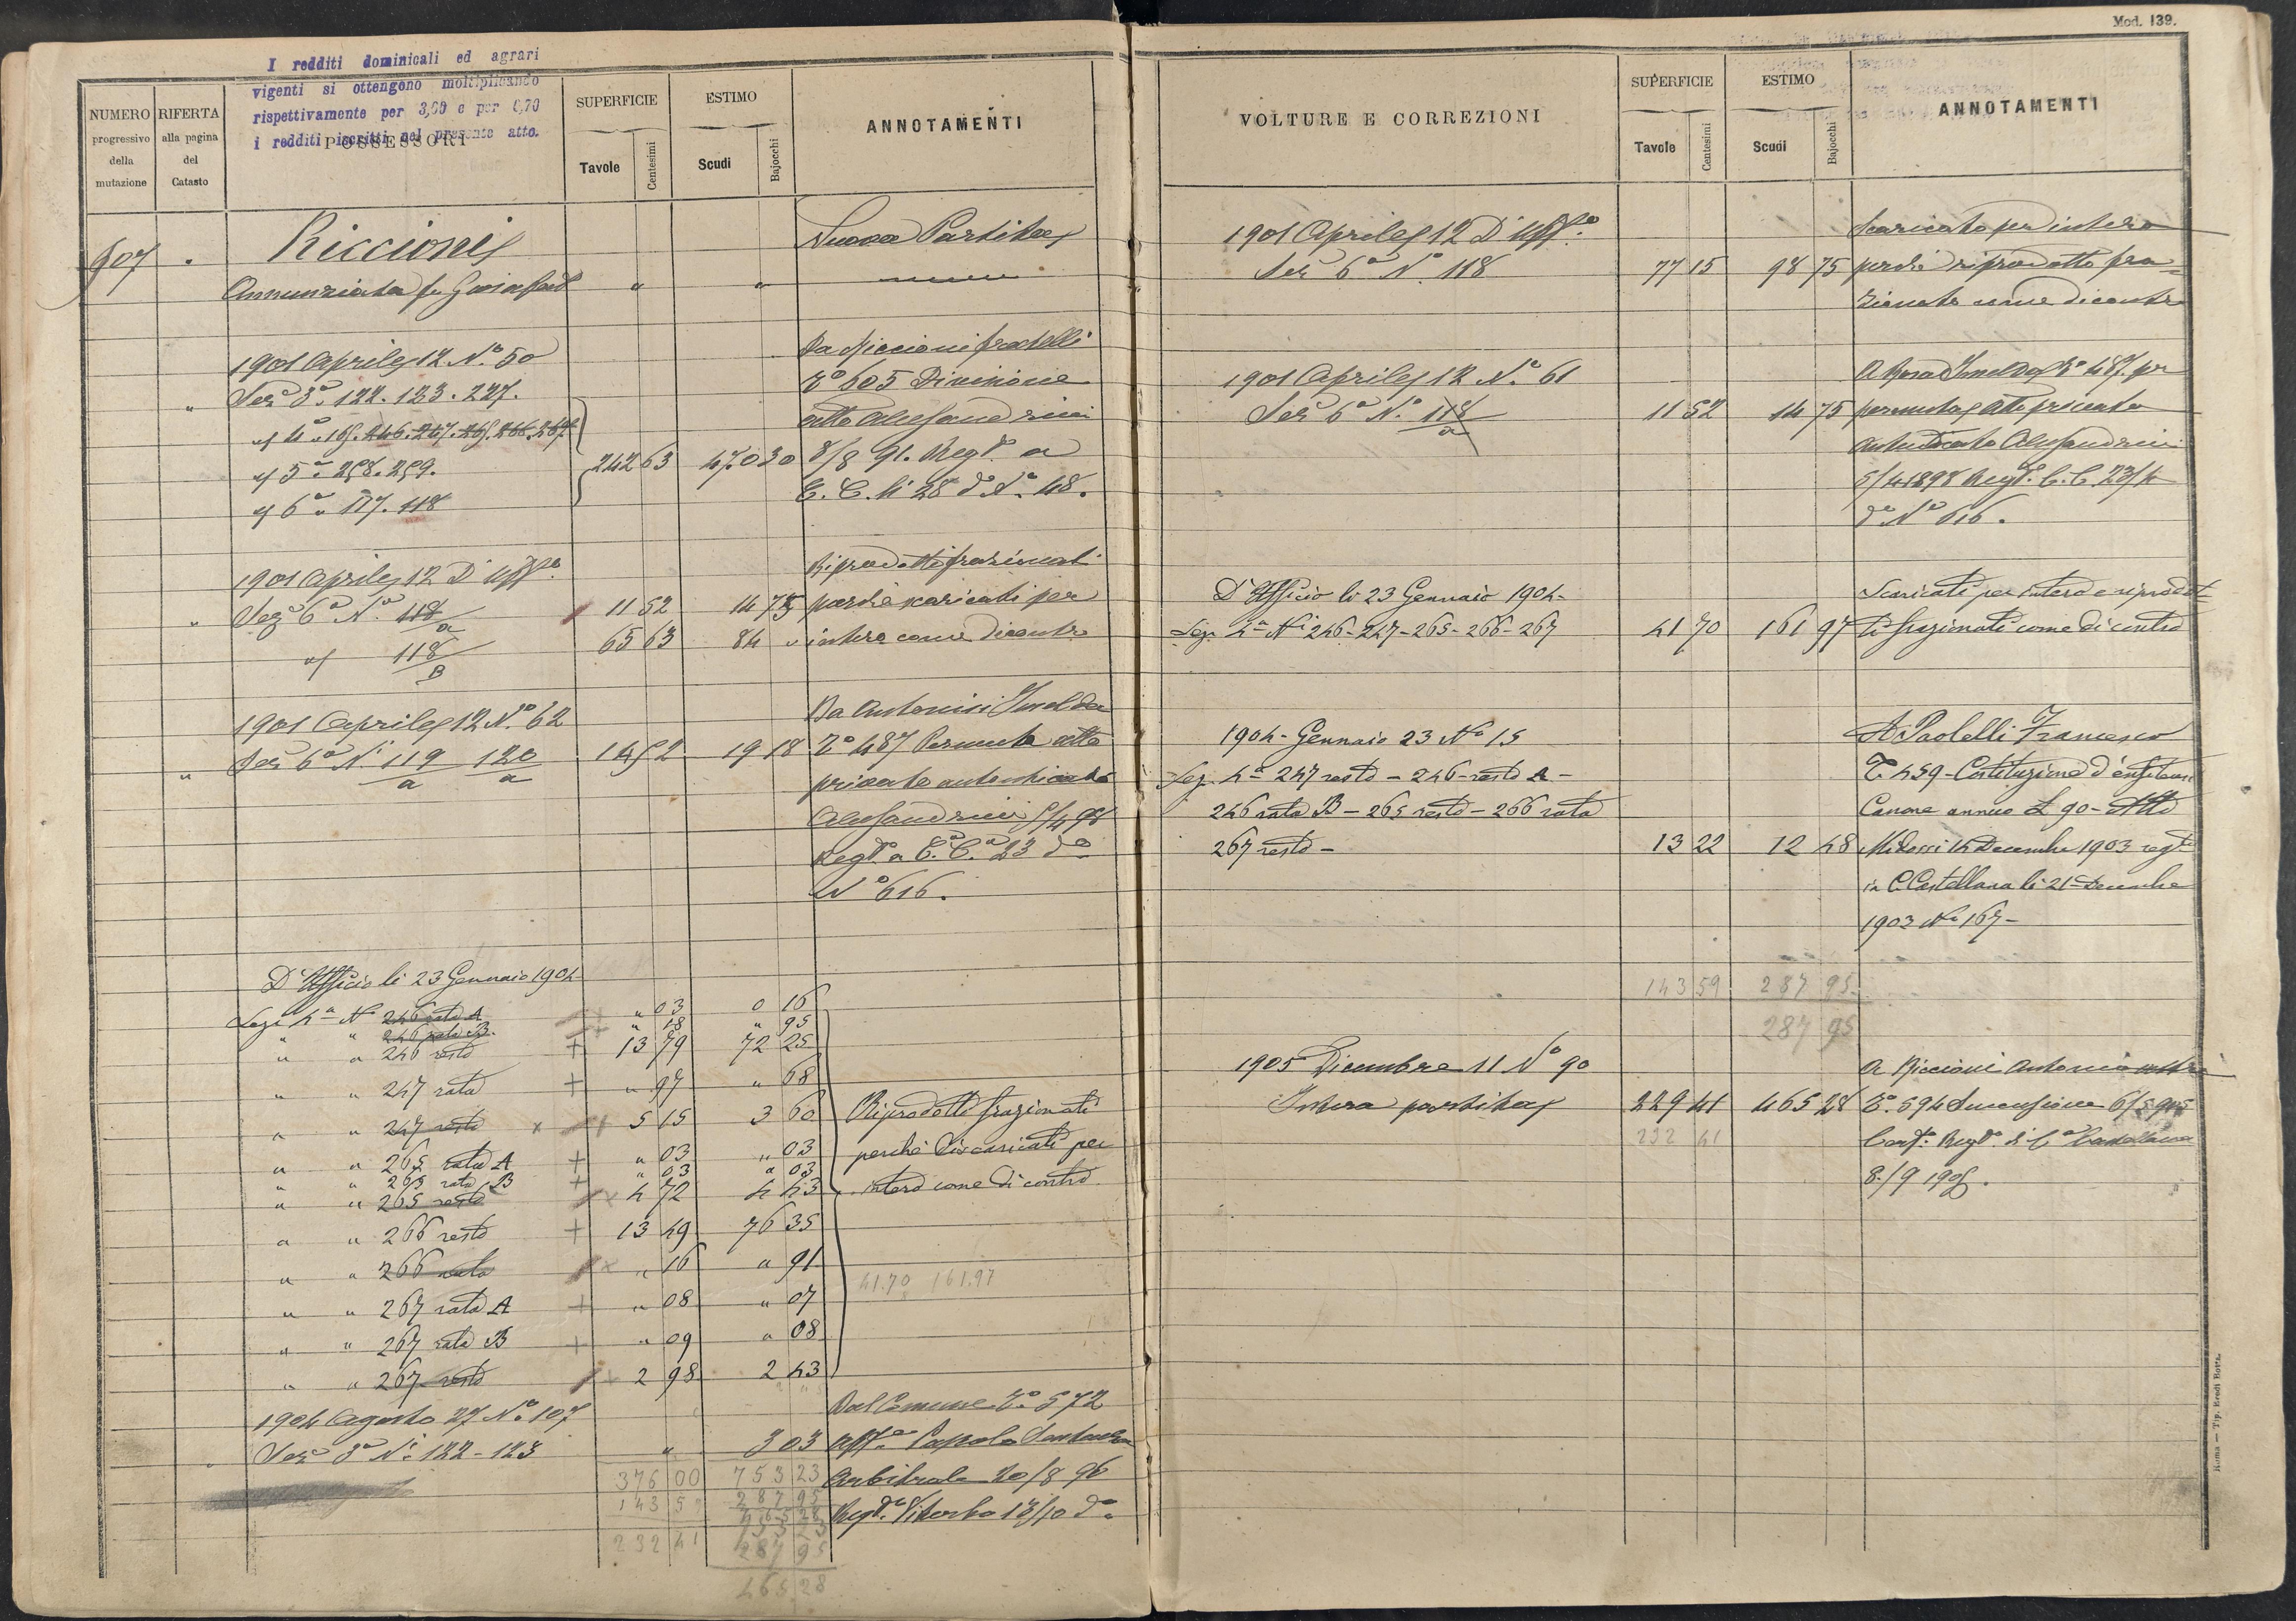 Mod. 139.
I redditi dominicali ed agrari
vigenti si ottengono moltiplicando
rispettivamente per 3,00 e per 0,70
i redditi iscritti nel presente atto.
NUMERO progressivo della mutazione
RIFERTA alla pagina del Catasto
POSSESSORI
SUPERFICIE
Tavole Centesimi
ESTIMO
Scudi Bajocchi
ANNOTAMENTI
907 Riccioni Nuova Partita
Annunziata fu " "
1901 Aprile 12 N.º 50 Da Riccioni fratelli
" Sez 3ª 122. 123. 227. Tº 605 Divisione
atto Alessandrini
" 5ª 258. 259. 242 63 470 30 8/8 91. Regtº a
" 6ª 117. 118 C. C. li 28 dº Nº 48.
1901 Aprile 12 D'Uffº Riprodotti frazionati
" Sez 6ª Nº 118/a 11 52 14 75 perchè scaricati per
" 118/B 65 63 84 " intero come dicontro
1901 Aprile 12 Nº 62 Da Antonini Imelda
" Sez 6ª Ni 119/a 120/a 14 52 19 18 Tº 487 Permuta atto
privato autenticato
Alessandrini 5/4 98
Regtº a C. Cª 23 dº
Nº 616.
D'Ufficio li 23 Gennaio 1904
Sez 4ª Nº 246 rata A " 03 0 16
" " 246 rata B. " 18 " 95
" " 246 resto + 13 79 72 25
" " 247 rata + " 97 " 68
" " 247 resto x 5 15 3 60 Riprodotti frazionati
" " 265 rata A + " 03 " 03 perchè discaricati per
" " 265 rata B + " 03 " 03
" " 265 resto 4 72 4 43 intero come di contro
" " 266 resto + 13 49 76 35
" " 266 rata " 16 " 91
41.70 161.97
" " 267 rata A + " 08 " 07
" " 267 rata B + " 09 " 08
" " 267 resto 2 98 2 43
1904 Agosto 27 Nº 107 Dal Comune Tº 572
" Sez 3ª Ni 122 - 123 " 3 03 Affº Popolo Sentenza
376 00 753 23 Arbitrale 20/8 96
143 59 287 95
465 28 Regtº Viterbo 13/10 dº
753 23
232 41 287 95
465 28
VOLTURE E CORREZIONI
SUPERFICIE
Tavole Centesimi
ESTIMO
Scudi Bajocchi
ANNOTAMENTI
1901 Aprile 12 D'Uffº Scaricato per intero
Sez 6ª Nº 118 77 15 98 75 perchè riprodotto fra=
zionato come dicontro
1901 Aprile 12 Nº 61 A Imelda Tº 487 per
Sez 6ª Nº 118/a 11 52 14 75 permuta Atto privato
autenticato Alessandrini
5/4 1898 Regtº C. C. 23/4
dº Nº 616.
D'Ufficio li 23 Gennaio 1904 - Scaricati per intero e riprodot-
Sez. 4ª Ni 246 - 247 - 265 - 266 - 267 41 70 161 97 ti frazionati come di contro
1904 - Gennaio 23 Nº 15 A Paolelli Francesco
Sez. 4ª 247 resto - 246 - rata A - T 459 - Costituzione d'enfiteusi
246 rata B - 265 resto - 266 rata Canone annuo £ 90 - Atto
267 resto - 13 22 12 48 Midossi 14 Decembre 1903 regtº
in C. Castellana li 21 Decembre
1903 Nº 167 -
143 59 287 95
287 95
1905 Dicembre 11 Nº 90 A Riccioni Antonio
Intera partita 229 41 465 28 Tº. 594 Successione
232 41 Certº Regtº a Cª Castellana
8/9 1905.
Roma — Tip. Eredi Botta.